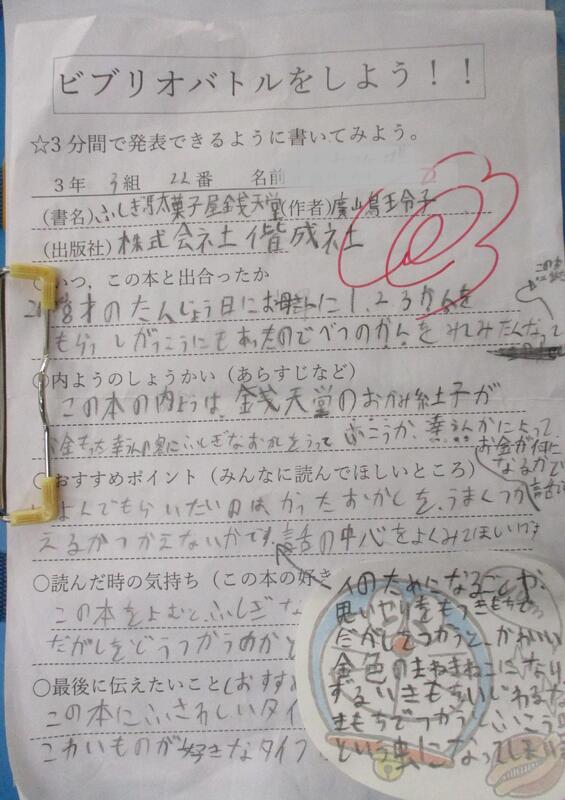 ビブリオバトルをしよう！！
☆3分間で発表できるように書いてみよう。
3年 3組 22番 名前
(書名)ふしぎ駄菓子屋銭天堂(作者)廣嶋玲子
(出版社)株式会社偕成社
○いつ、この本と出合ったか
8才のたんじょう日にお母さんに1、2、3かんを
もらっ しがっこうにもあったのでべつのかんを
この本
○内ようのしょうかい（あらすじなど）
この本の内ようは、銭天堂のおかみ紅子が
お金もった幸うんの客にふしぎなおかしをうって ふこうか、幸うんかによって
お金が何に
なるかで
○おすすめポイント（みんなに読んでほしいところ）
よんでもらいたいのはかったおかしを、うまくつか
えるかつかえないかです。話の中心をよくみてほしい
○読んだ時の気持ち（この本の好き
この本をよむと、ふしぎな
だがしをどうつかうのかと
○最後に伝えたいこと（おすす
この本にふさわしいタイ
こわいものが好きなタイプ
人のためになることや、
思いやりをもつきもちで
だがしをつかうと、かわいい
金色のまねきねこになり、
ずるいきもちいじわるな
きもちでつかうとふこう
という虫になってしま